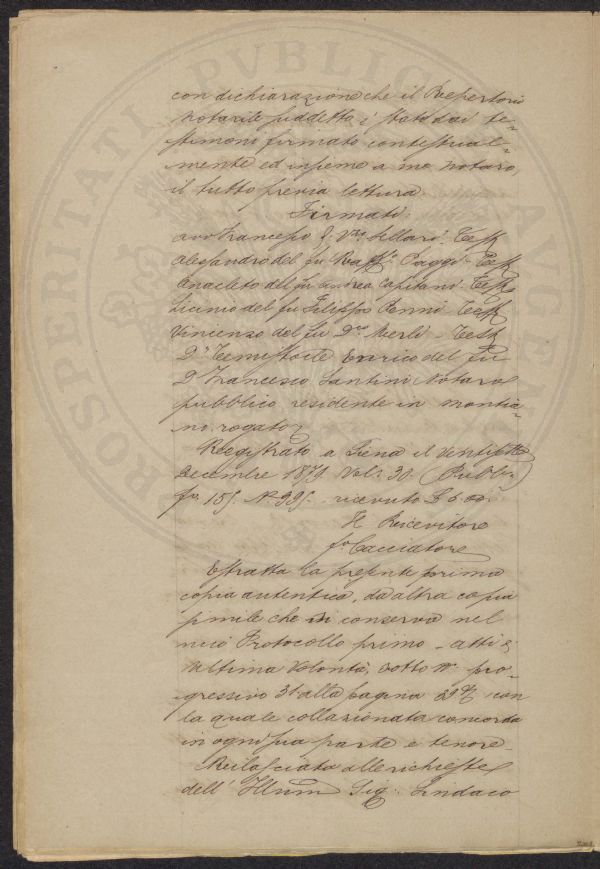 con dichiarazione che il Repertorio
notarile suddetto è stato dai te-
stimoni firmato contestual-
mente ed insieme a me notaro,
il tutto previa lettura
Firmati:
Avv Francesco Sellari. Test
Alessandro del fu Raffo Caggi - Test
Anacleto del fu Andrea Capitani Test
Licinio del fu Filippo Penni Test
Vincenzo del fu Dco Merli - Test
Dr Temistocle Enrico del fu
Dr Francesco Santini Notaro
pubblico residente in Montia-
no rogato
Registrato a Siena il ventisette
Decembre 1879 Vol: 30. Pubbl.
fo. 155. No 995. ricevuto L 6.00
Il Ricevitore
fo Cacciatore
Estratta la presente prima
copia autentica, da altra copia
simile che si conserva nel
mio Protocollo primo - atti di
Ultima Volontà, sotto n. pro-
gressivo 31 alla pagina con
la quale collazionata concorda
in ogni sua parte e tenore -
Rilasciata alle richieste
dell' Illum Sig: Sindaco
PROSPERITATI PVBLICAE AVGENDAE